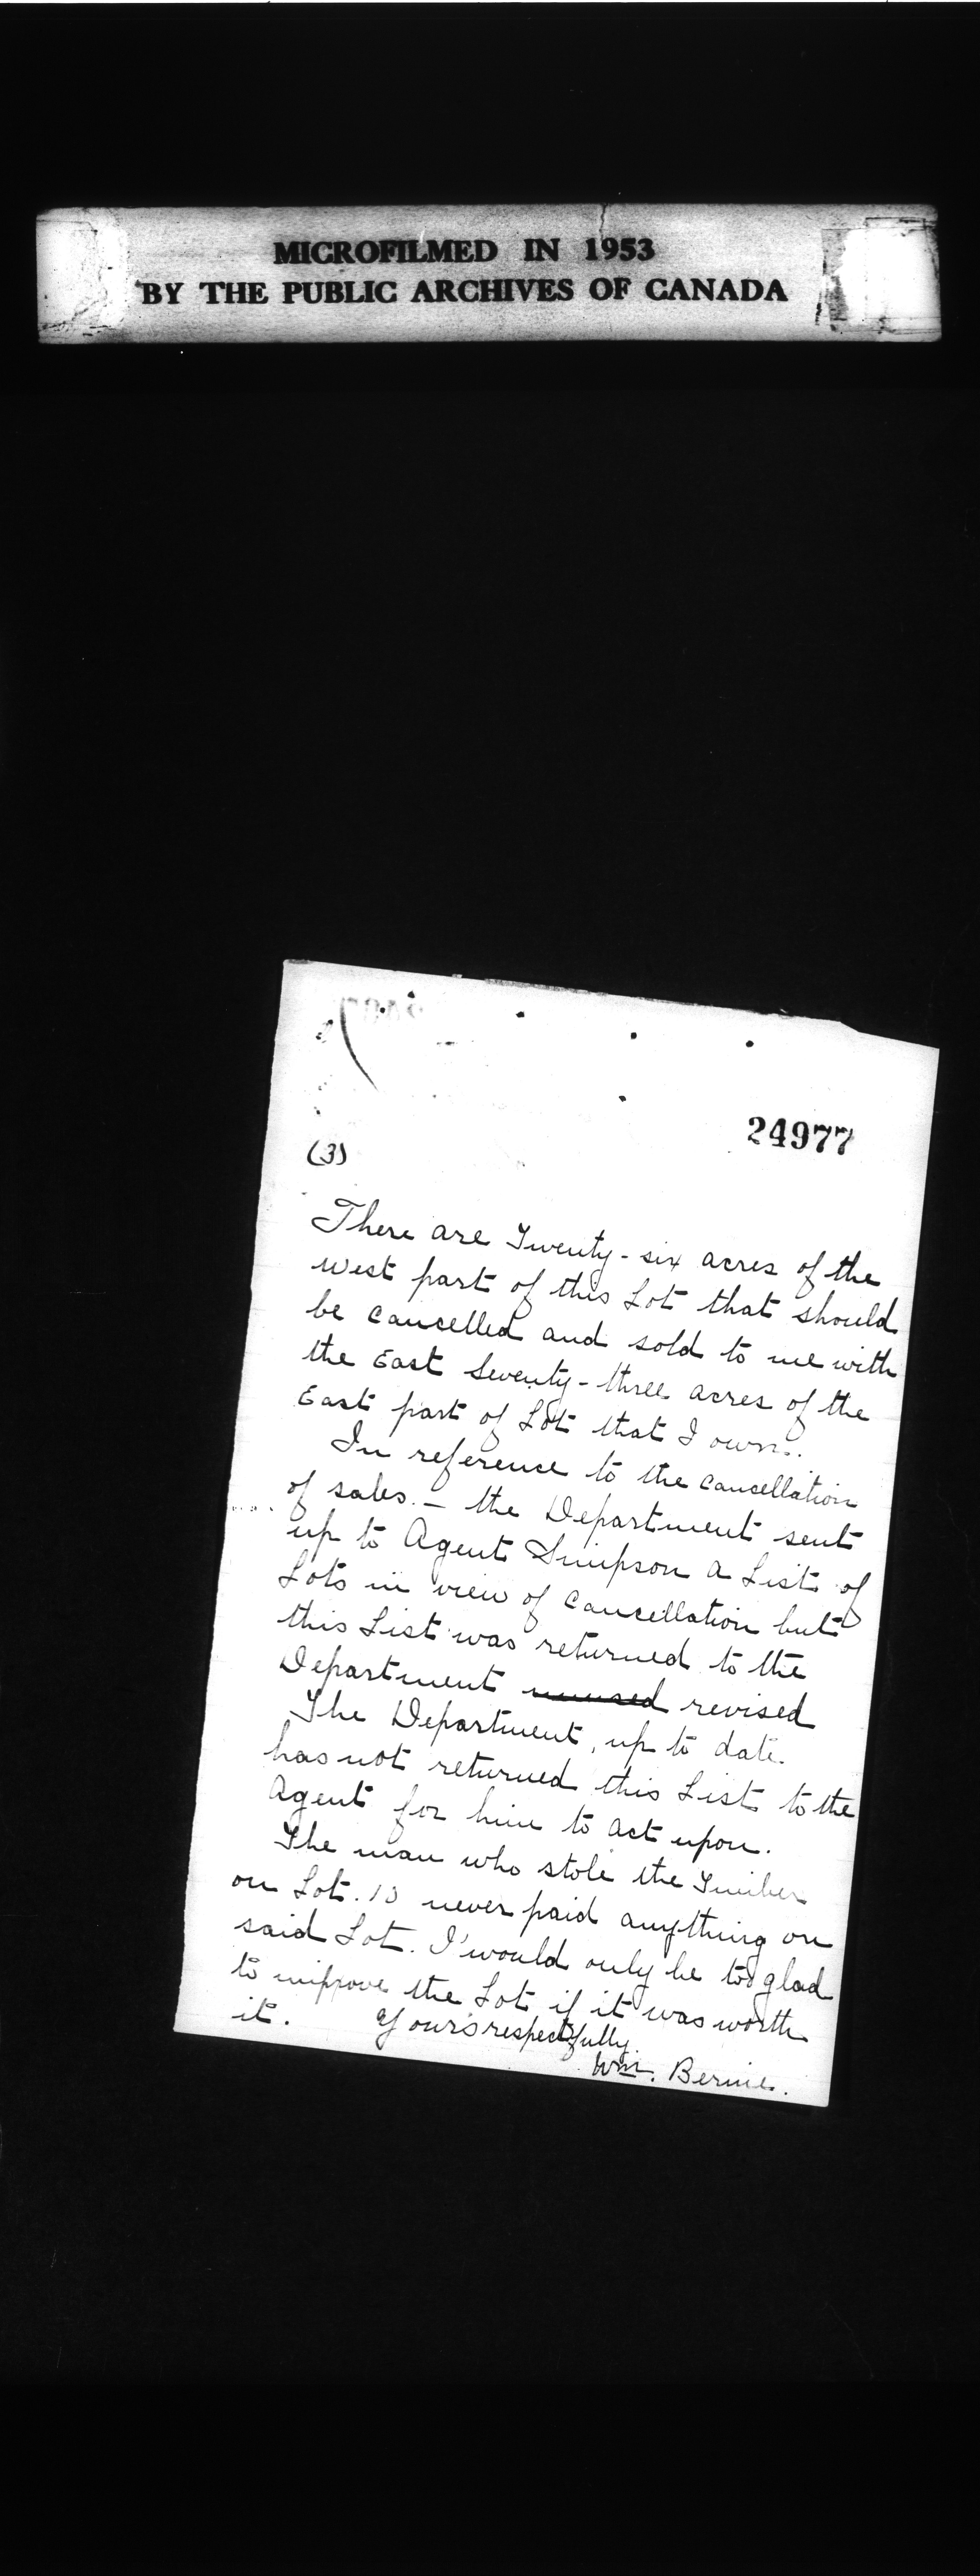 MICROFILMED IN 1953
BY THE PUBLIC ARCHIVES OF CANADA
24977
(3)
There are Twenty-six acres of the
west part of this Lot that should
be cancelled and sold to me with
the East Seventy-three acres of the
East part of Lot that I own.
In reference to the cancellation
of sales. - the Department sent
up to Agent Simpson a List of
Lots in view of cancellation but
this List was returned to the
Department unused revised
The Department, up to date.
has not returned this List to the
Agent for him to act upon.
The man who stole the Timber
on Lot. 10 never paid anything on
said Lot. I would only be too glad
to improve the Lot if it was worth
it. Yours respectfully
Wm. Bernie.